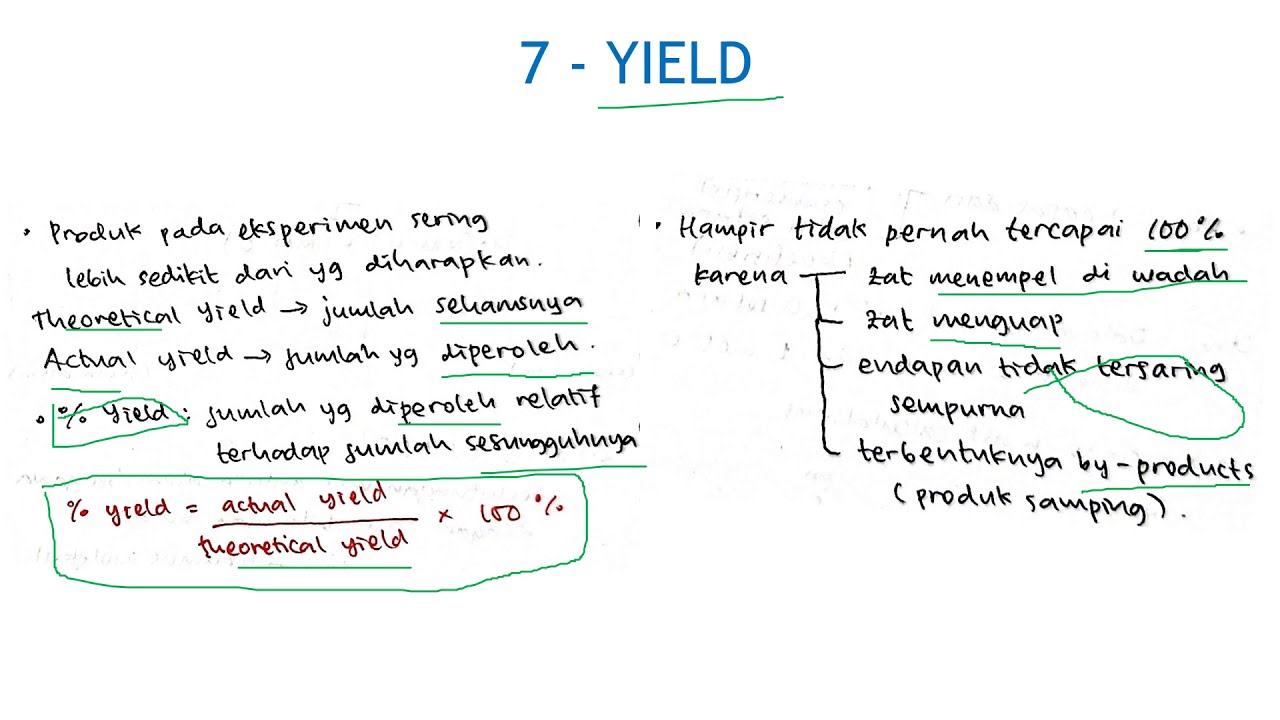 7 - YIELD
• Produk pada eksperimen sering
lebih sedikit dari yg diharapkan.
Theoretical yield → jumlah seharusnya
Actual yield → jumlah yg diperoleh.
• % yield : jumlah yg diperoleh relatif
terhadap jumlah sesungguhnya
% yield = actual yield / theoretical yield × 100 %
• Hampir tidak pernah tercapai 100%
karena zat menempel di wadah
zat menguap
endapan tidak tersaring
sempurna
terbentuknya by-products
(produk samping).